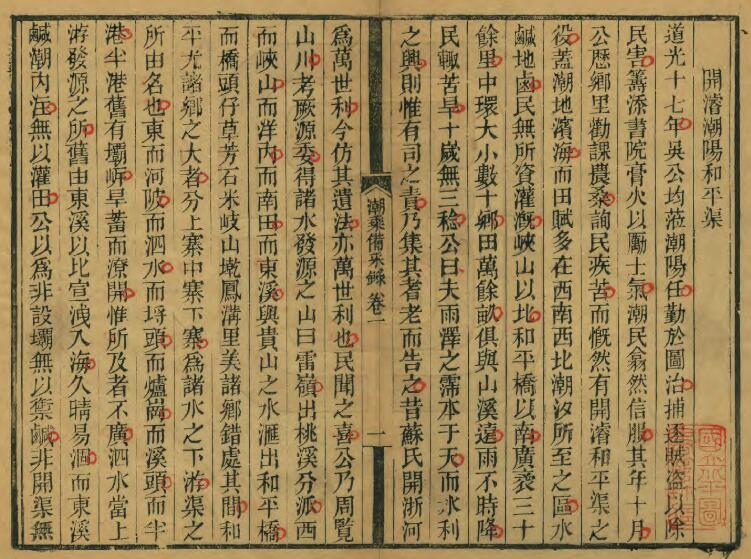 開濬潮陽和平渠
道光十七年吳公均蒞潮陽任勤於圖治捕逐賊盜以除
民害籌添書院膏火以勵士氣潮民翕然信服其年十月
公歷鄉里勸課農桑詢民疾苦而慨然有開濬和平渠之
役蓋潮地濱海而田賦多在西南西北潮汐所至之區水
鹹地鹵民無所資灌漑峽山以北和平橋以南廣袤三十
餘里中環大小數十鄉田萬餘畝俱與山溪遠雨不時降
民輙苦旱十歲無三稔公曰夫雨澤之霈本于天而水利
之興則惟有司之責乃集其耆老而告之昔蘇氏開浙河
潮乘備采錄 卷一
一
爲萬世利今仿其遺法亦萬世利也民聞之喜公乃周覽
山川考厥源委得諸水發源之山曰雷嶺出桃溪分派西
而峽山而洋內而南田而東溪與貴山之水滙出和平橋
而橋頭仔草芳石米岐山墘鳳溝里美諸鄉錯處其間和
平尤諸鄉之大者分上寨中寨下寨爲諸水之下游渠之
所由名也東而河陂而泗水而埓頭而爐崗而溪頭而半
港半港舊有壩㟁旱蓄而潦開惟所及者不廣泗水當上
游發源之所舊由東溪以比宣洩入海久晴易涸而東溪
鹹潮內汪無以灌田公以爲非設壩無以禦鹹非開渠無